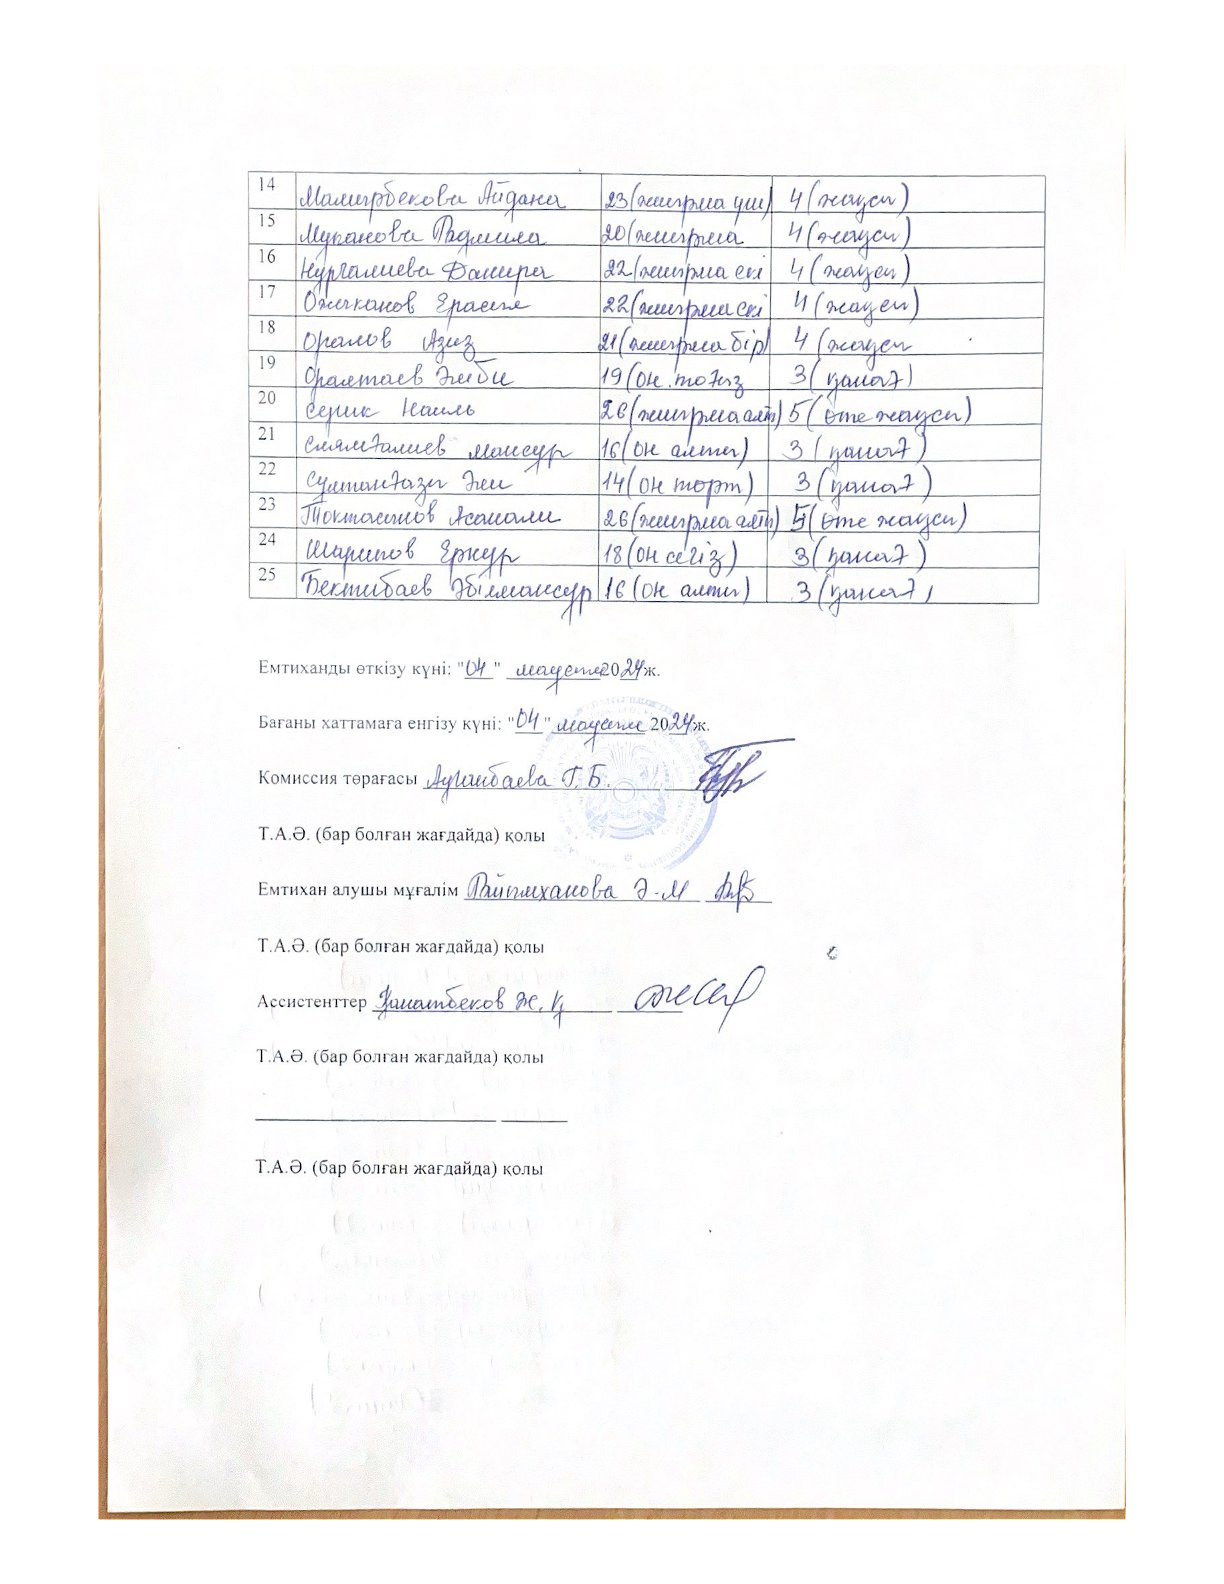 14 Мамырбекова Айдана 23 (жиырма үш) 4 (жақсы)
15 Муканова Радмила 20 (жиырма 4 (жақсы)
16 Нургалиева Дамира 22 (жиырма екі 4 (жақсы)
17 Ожыканов Ерасыл 22 (жиырма екі 4 (жақсы)
18 Оралов Азиз 21 (жиырма бір) 4 (жақсы
19 Оралтаев Әнеби 19 (он тоғыз 3 (қанағ)
20 Серик Наиль 26 (жиырма алты) 5 (өте жақсы)
21 Сиямғалиев Мансур 16 (он алты) 3 (қанағ)
22 Сұлтанғазы Әли 14 (он төрт) 3 (қанағ)
23 Токтасынов Асанали 26 (жиырма алты) 5 (өте жақсы)
24 Шарипов Еркур 18 (он сегіз) 3 (қанағ)
25 Бектибаев Әбілмансур 16 (он алты) 3 (қанағ)
Емтиханды өткізу күні: "04" маусым 2024ж.
Бағаны хаттамаға енгізу күні: "04" маусым 2024ж.
Комиссия төрағасы Г.Б.
Т.А.Ә. (бар болған жағдайда) қолы
Емтихан алушы мұғалім Райымханова Ә.М
Т.А.Ә. (бар болған жағдайда) қолы
Ассистенттер Қанатбеков Ж.Қ
Т.А.Ә. (бар болған жағдайда) қолы
Т.А.Ә. (бар болған жағдайда) қолы